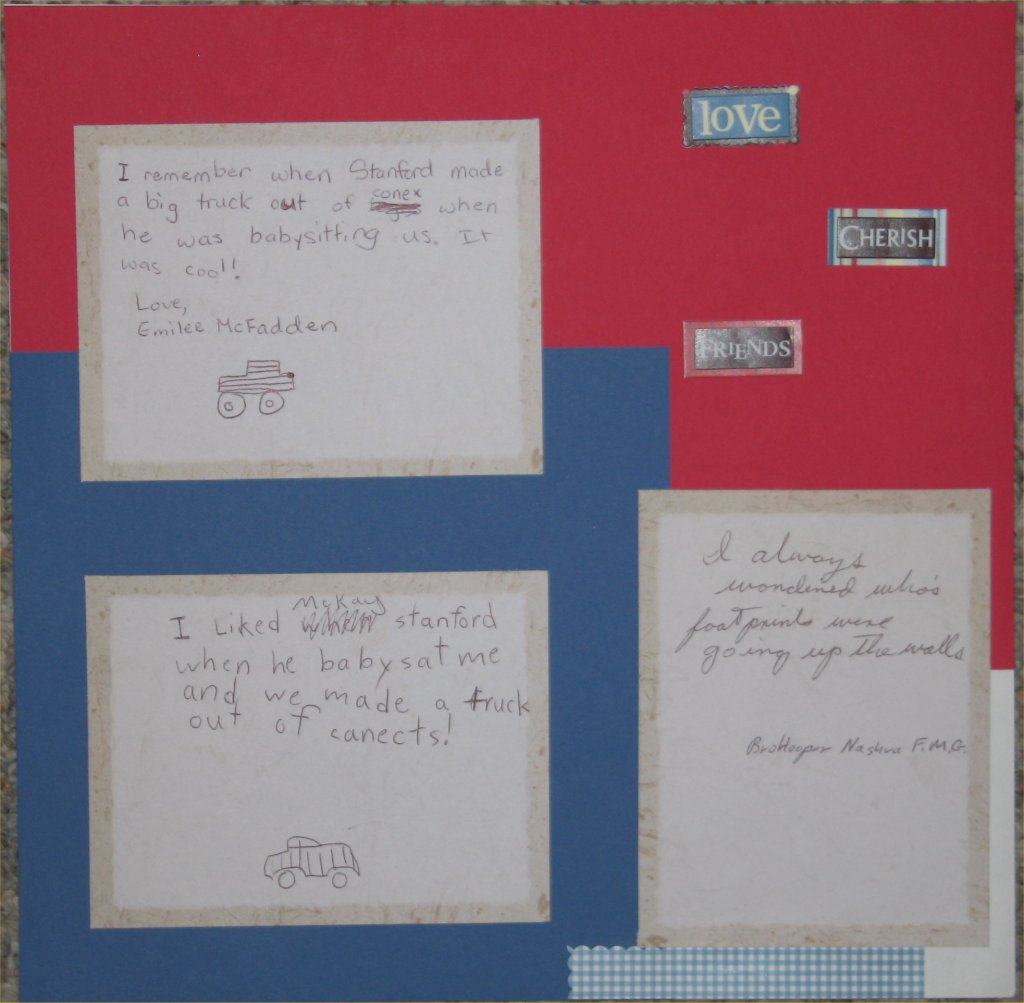 love
CHERISH
FRIENDS
I remember when Stanford made
a big truck out of conex when
he was babysitting us. It
was cool!
Love,
Emilee McFadden
I Liked McKay stanford
when he babysat me
and we made a truck
out of canects!
I always
wondered who's
footprints were
going up the walls
Nashua F.M.G.